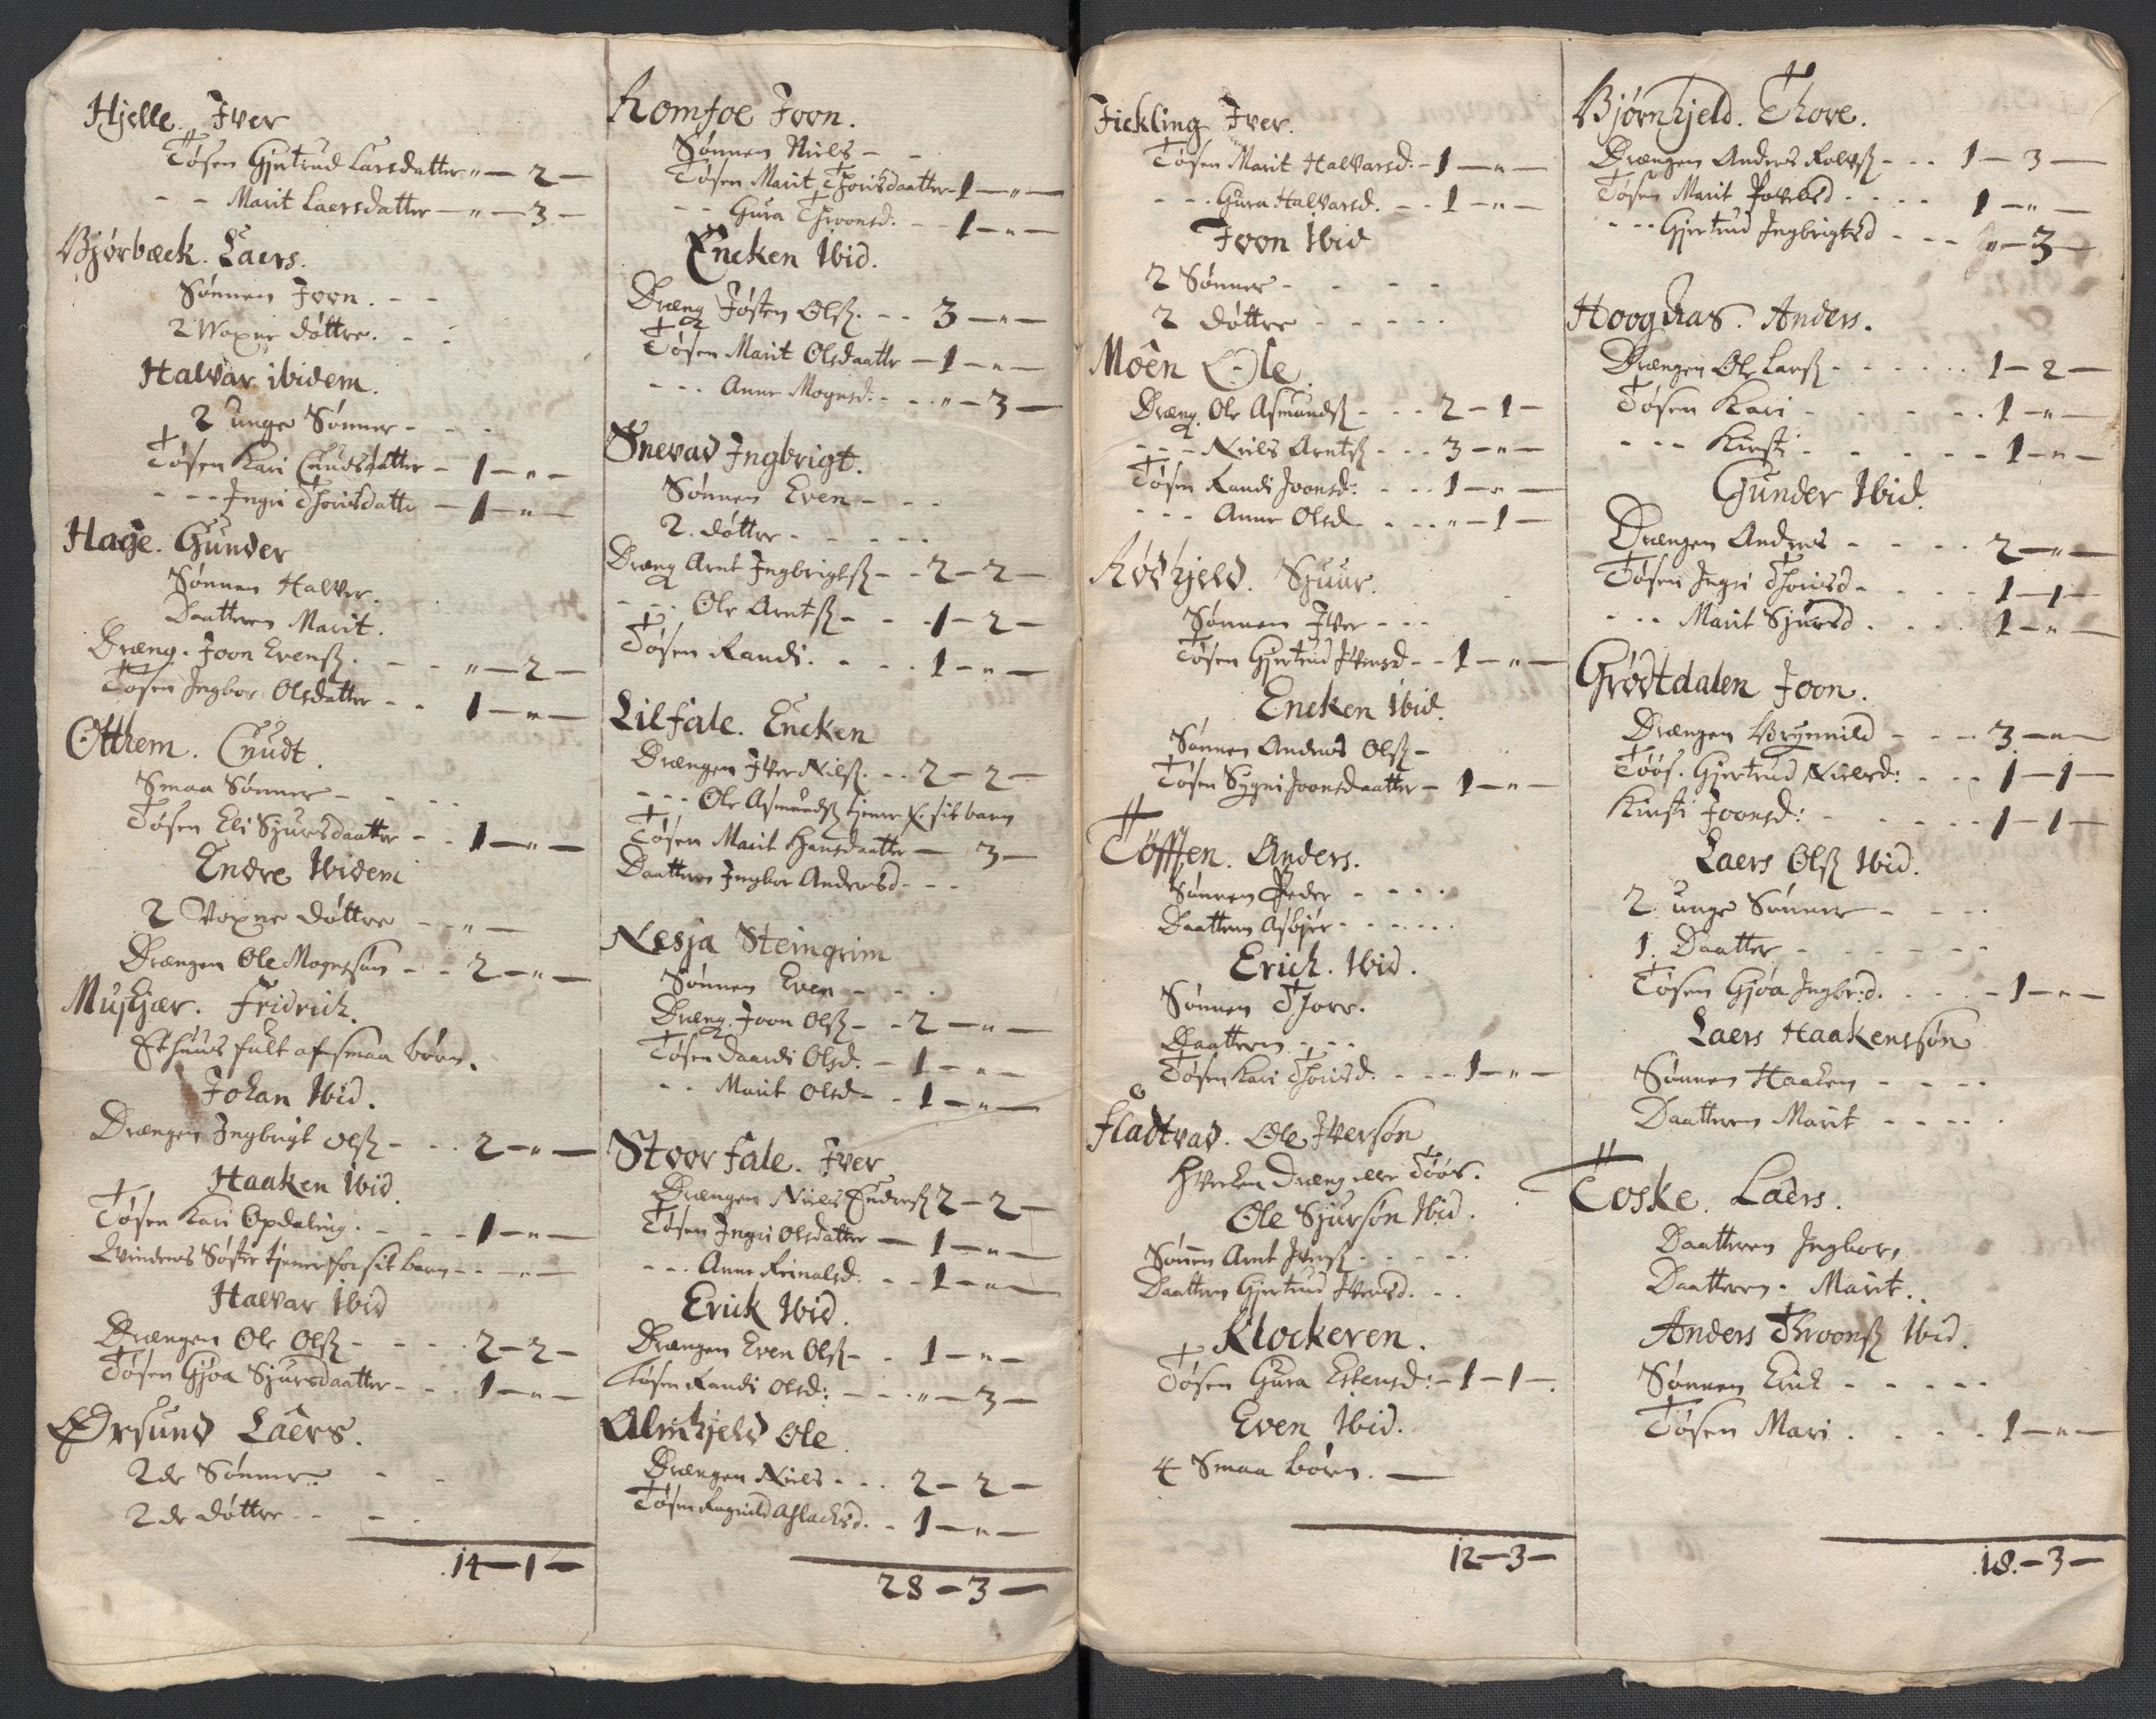 Hjelle. Iver
Tøsen Gjertrud Larsdatter " — 2 —
- - Marit Laersdatter — " — 3 —
Bjørbæck. Laers.
Sønnen Joen. - -
2 Woxne døttre. - -
Halvar ibidem.
2 unge Sønner - - -
Tøsen Kari Cnudsdatter - 1 — " —
- - - Ingri Thorisdatter — 1 — " —
Hage. Gunder
Sønnen Halver.
Daatteren Marit.
Dræng. Joon Evenß. - - - " — 2 —
Tøsen Ingbor Olsdatter - - 1 — " —
Otthem. Cnudt.
Smaa Sønner - - - -
Tøsen Eli Sjursdaatter - - 1 — " —
Endre Ibidem
2 Voxne døttre - - " —
Drængen Ole Mogensøn - - 2 — " —
Muskjær. Fridrich.
Et huus fult af smaa børn.
Johan Ibid.
Drængen Ingbrigt Olß - - - 2 — " —
Haaken Ibid.
Tøsen Kari Opdaling. - - - 1 — " —
Qvindens Søster tjener for sit barn - - " —
Halvar Ibid
Drængen Ole Olß - - - - 2 — 2 —
Tøsen Gjøa Sjursdaatter - - - 1 — " —
Ørsund Laers.
2de Sønner - -
2de døttre - - - -
14 — 1 —
Romfoe Joon.
Sønnen Niels - -
Tøsen Marit Thorisdaatter - 1 — " —
- - Gura Throonsd. - - 1 — " —
Encken Ibid.
Dræng Jøsten Olß. - - 3 — " —
Tøsen Marit Olsdaatter — 1 — " —
- - - Anne Mogensd. - - - " — 3 —
Snevad Ingbrigt.
Sønnen Even - - -
2. døttre - - - - -
Dræng Arnt Ingbrigtß - - 2 — 2 —
- - - Ole Arntß - - - 1 — 2 —
Tøsen Randi. - - - 1 — " —
Lilfale. Encken
Drængen Iver Nilß. - - 2 — 2 —
- - - Ole Asmundß tjener f. sit barn
Tøsen Marit Hansdaatter — 3 —
Daatteren Ingbor Andersd - - -
Nesja Steingrim
Sønnen Even - - - -
Dræng. Joon Olß - - 2 — " —
Tøsen Daardi Olsd. - 1 — " —
- - Marit Olsd - - 1 — " —
Stoor fale. Iver
Drængen Niels Endresß 2 — 2 —
Tøsen Ingri Olsdatter — 1 — " —
- - - Anne Reinalsd. - - 1 — " —
Erick Ibid.
Drængen Even Olß - - 1 — " —
Tøsen Randi Olsd: - - - " — 3 —
Almskjeld Ole.
Drængen Niels - - - 2 — 2 —
Tøsen Ragnild Aslacksd. - 1 — " —
28 — 3 —
Fickling Iver.
Tøsen Marit Halvarsd. - 1 — " —
- - - Gura Halvarsd. - - 1 — " —
Joon Ibid
2 Sønner - - - -
2 døttre - - - - -
Moën Ole.
Dræng. Ole Asmundß - - - 2 — 1 —
- - - Niels Arntß - - - 3 — " —
Tøsen Randi Joonsd: - - - 1 — " —
- - - Anne Olsd - - - - " — 1 —
Rødkjeld. Sjuur.
Sønnen Iver - - -
Tøsen Gjertrud Iversd - - 1 — " —
Encken Ibid.
Sønnen Anders Olß -
Tøsen Sygni Joonsdaatter - 1 — " —
Töfften. Anders.
Sønnen Peder - - - -
Daatteren Asbjør - - - - - -
Erich. Ibid.
Sønnen Thore.
Daatteren - - -
Tøsen Kari Thorisd. - - - 1 — " —
Fladtvad. Ole Iversøn
Hverken Dræng eller Töös.
Ole Sjursøn Ibid.
Sønnen Arnt Iverß - - - - -
Daatteren Gjertrud Iversd. - -
Klockeren.
Tøsen Gura Estensd: - 1 — 1 —
Even Ibid.
4 Smaa børn. —
12 — 3 —
Bjørnkjeld. Thore.
Drængen Anders Rolvß - - - 1 — 3 —
Tøsen Marit Povelsd - - - - 1 — " —
- - - Gjertrud Ingbrigtsd - - - " — 3 —
Hoogdhas. Anders.
Drængen Ole Larß - - - - - - 1 — 2 —
Tøsen Kari - - - - - - 1 — " —
- - - Kirsti - - - - - 1 — " —
Gunder Ibid.
Drængen Anders - - - - 2 — " —
Tøsen Ingri Thorisd - - - - 1 — 1 —
- - - Marit Sjursd. - - - 1 — " —
Grødtdalen Joon.
Drængen Brynnild - - - 3 — " —
Töös. Gjertrud Nielsd: - - - 1 — 1 —
Kirsti Joonsd: - - - - - 1 — 1 —
Laers Olß Ibid.
2 unge Sønner - - - -
1. Daatter - - - - - -
Tøsen Gjøa Ingbr:d. - - - - 1 — " —
Laers Haakensøn
Sønnen Haaken - - - -
Daatteren Marit - - - - -
Toske. Laers.
Daatteren Ingbor,
Daatteren. Marit.
Anders Throonß Ibid.
Sønnen Erick - - - - -
Tøsen Mari. - - - - 1 — " —
18. — 3 —